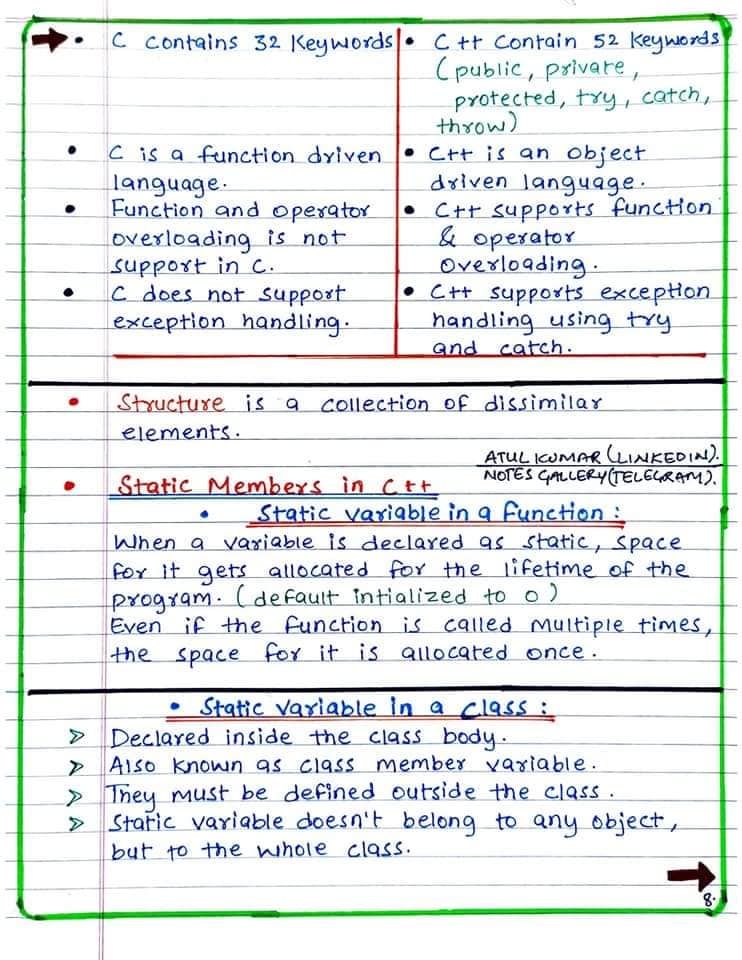 • C contains 32 Keywords
• C++ Contain 52 Keywords
(public, private,
protected, try, catch,
throw)
• C is a function driven
language.
• C++ is an object
driven language.
• Function and operator
overloading is not
support in C.
• C++ supports function
& operator
overloading.
• C does not support
exception handling.
• C++ supports exception
handling using try
and catch.
• Structure is a collection of dissimilar
elements.
ATUL KUMAR (LINKEDIN).
NOTES GALLERY (TELEGRAM).
• Static Members in C++
• Static variable in a Function :
When a variable is declared as static, space
for it gets allocated for the lifetime of the
program. (default intialized to 0)
Even if the function is called multiple times,
the space for it is allocated once.
• Static variable in a class :
➢ Declared inside the class body.
➢ Also known as class member variable.
➢ They must be defined outside the class.
➢ Static variable doesn't belong to any object,
but to the whole class.
8.